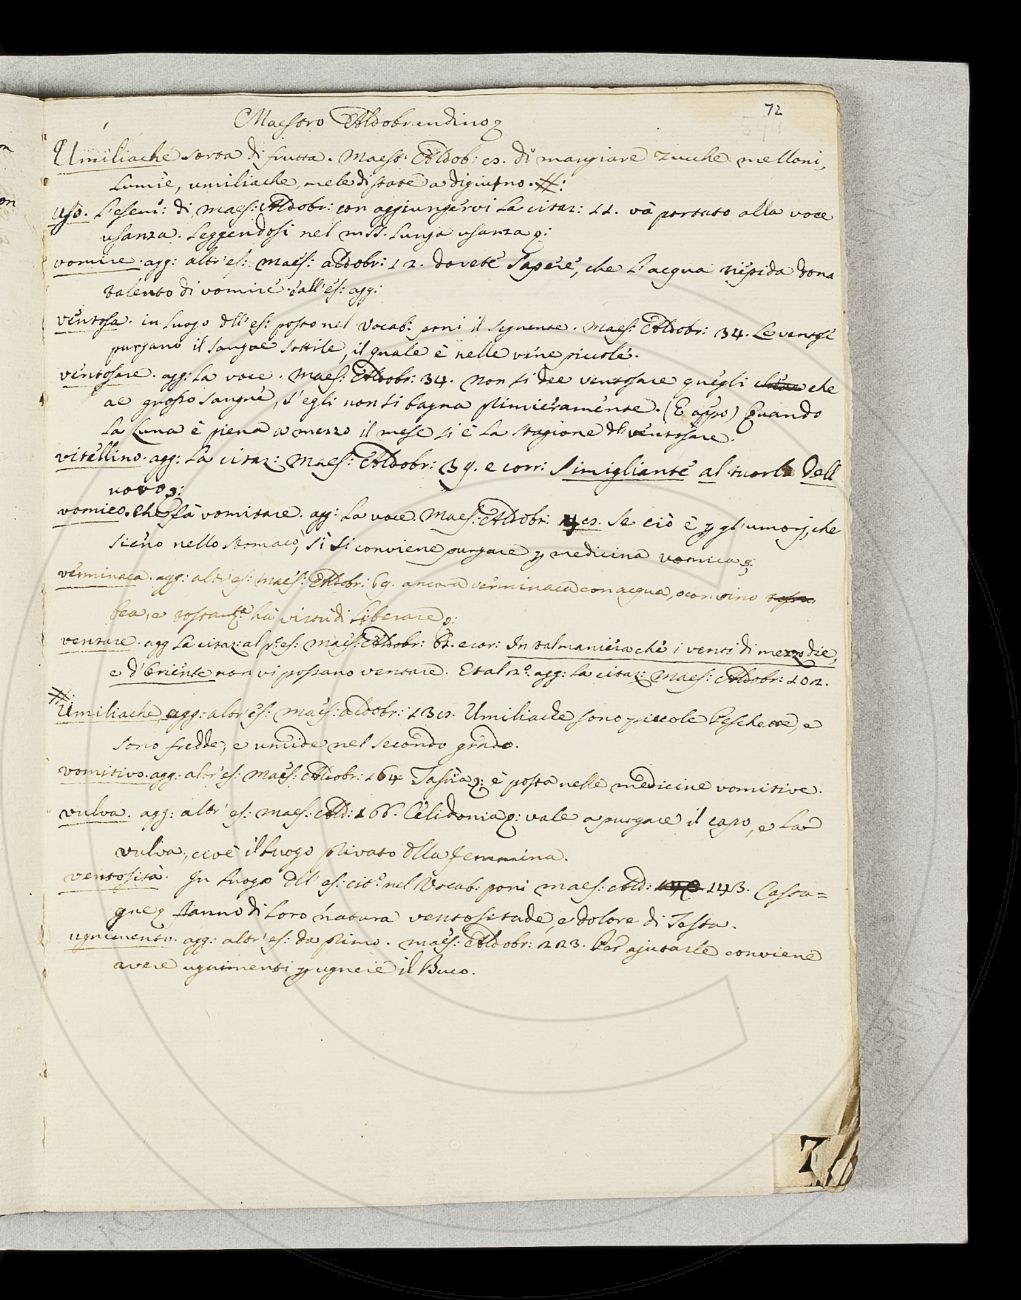 72
Maestro Aldobrandino
Umiliache sorta di frutta. Maest: Aldob: cs. di mangiare zucche melloni,
Lumie, umiliache, mele di state a digiuno. #:
Uso. L'esem: di Maes: Aldobr: con aggiungervi la citaz: 11. và portato alla voce
usanza. Leggendosi nel mst. lunga usanza
vomire. agg: altr'es: Maes: Aldobr: 12. dovete sapere, che l'acqua tiepida dona
talento di vomire. all'es: agg:
ventosa. in luogo dll'es: posto nel Vocab: poni il seguente. Maes: Aldobr: 34. Le ventose
purgano il sangue sottile, il quale è nelle vine piccole.
ventosare. agg: la voce. Maes: Aldobr: 34. non si dee ventosare quegli che
ae grosso sangue, s'egli non si bagna primieramente. (E appo) Quando
la Luna è piena a mezzo il mese si è la stagione di ventosare.
vitellino. agg: la citaz: Maes: Aldobr: 39. e corr: simigliante al tuorlo dell
uovo
vomico. Che fà vomitare. agg: la voce. Maes: Aldobr: cs. Se ciò è p gl'umori, che
sieno nello stomaco, sì si conviene purgare p medicina vomica
verminaca. agg: altr'es: Maes: Aldobr: 69. ancora verminaca con acqua, o con vino
bea, e tostante hà virtù di liberare
ventare. agg la citaz: al p: es: Maes: Aldobr: e cor: In tal maniera che i venti di mezzo die,
e d'Oriente non vi possano ventare. Et al 2.º agg: la citaz: Maes: Aldobr: 102.
#:
Umiliache agg: altr'es: Maes: Aldobr: 13 cs. Umiliache sono piccole peschette, e
sono fredde, e umide nel secondo grado.
vomitivo. agg: altr'es: Maes: Aldobr: 164 Tassia è posta nelle medicine vomitive.
vulva. agg: altr'es: Maes: Ald: 166. Celidonia vale a purgare il capo, e la
vulva, cioè il luogo privato della femmina.
ventosità. In luogo dll'es: cit.º nel Vocab: poni Maes: Ald: 143. Casta=
gne fanno di loro natura ventositade, e dolore di Testa.
ugnimento. agg: altr'es: da primo. Maes: Aldobr: 223. Per ajutarle conviene
avere ugnimenti p ugnere il Buco.
7